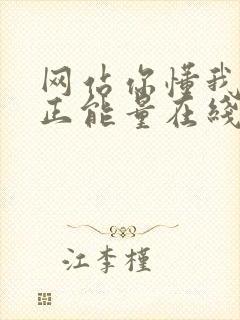 网站你懂我
正能量在线
江李槿